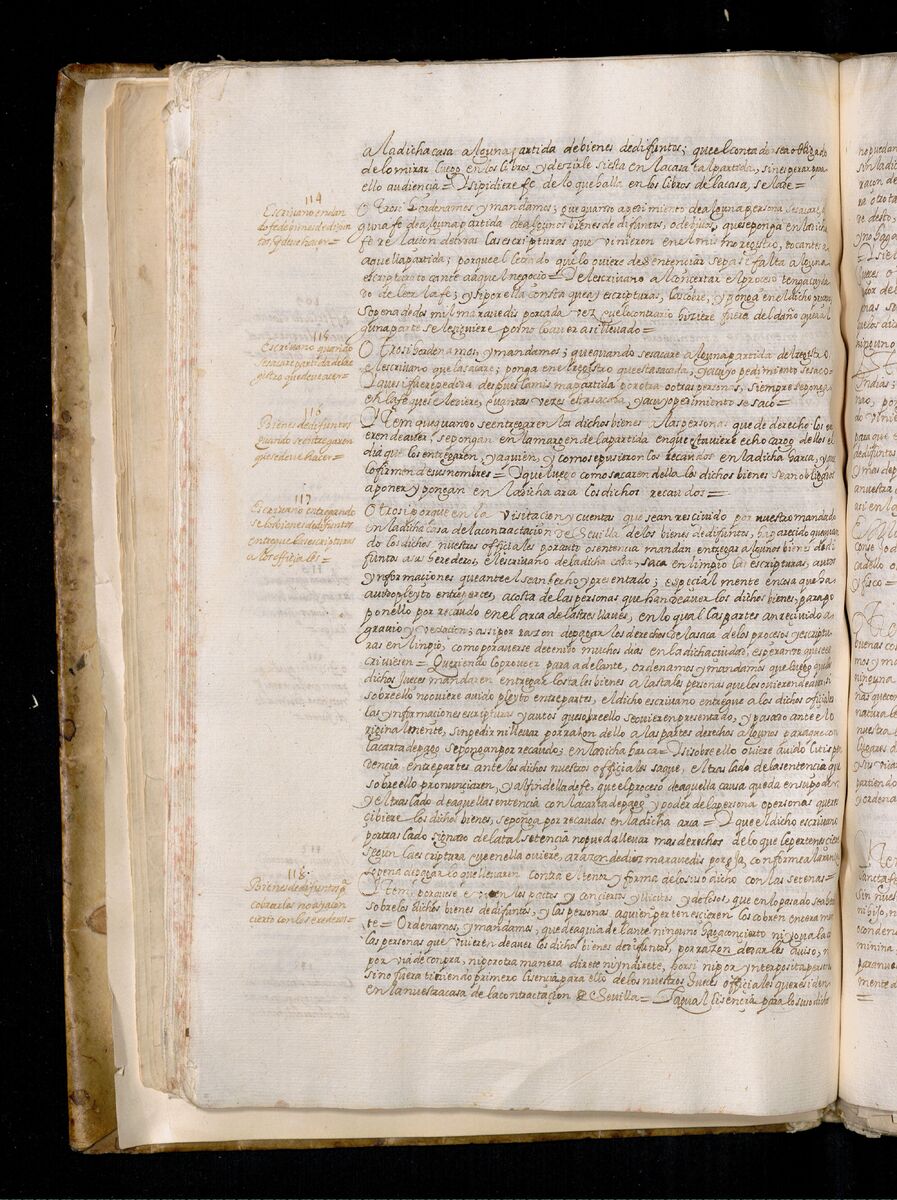 a la dicha casa alguna partida de bienes de difuntos; que el contador sea obligado
de lo mirar luego en los libros, y dezirle si esta en la casa tal partida, sin esperar para
ello audiencia = Y si pidiere fe de lo que halla en los libros de la casa, se la de =
114
Escrivano en dan
do fe de vienes de difun
tos, q deve hacer=
Otrosi hordenamos y mandamos; que quando a pedimiento de alguna persona se sacare al
guna fe de alguna partida de algunos bienes de difuntos, o debitos, que se ponga en la dicha
fe relacion de todas las escripturas que vinieron en el mismo registro, tocantes a
aquella partida, porque el letrado que lo oviere de sentenciar sepa si falta alguna
escriptura tocante a aquel negocio = Y el escrivano al concertar el proceso tenga cuyda
do de leer la fe; y si por ella consta que ay escripturas, las cobre, y ponga en el dicho proceso
so pena de dos mill maravedis por cada vez que lo contrario hiziere fuera del daño que a al
guna parte se le siguiere por no lo aver asi llevado =
115
Escrivano quando
se sacare partida del re
gistro que deve acer=
Otrosi hordenamos, y mandamos; que quando se sacare alguna partida del registro
el escrivano que la sacare; ponga en el registro que esta sacada; y a cuyo pedimiento se saco=
Y que si fuere pedira despues la misma partida por otra o otras personas, siempre se ponga
en la fe que se le diere, quantas vezes esta sacada, y a cuyo pedimiento se saco =
116
Bienes de difuntos
quando se entregaren
que se deve hacer=
Item que quando se entregaren los dichos bienes a las personas que de derecho los ovi
eren de aver, se pongan en la margen de la partida en que estuviere echo cargo de llos el
dia que los entregaren, y a quien, y como se pusieron los recaudos en la dicha harca, y que
lo firmen de sus nombres = Y que luego como sacaren della los dichos bienes sean obligados
a poner y pongan en la dicha arca los dichos recaudos =
117
Escrivano entregando
se los bienes de difuntos
entregue las escripturas
a los officiales=
Otrosi porque en la visitacion y cuentas que se an rescivido por nuestro mandado
en la dicha casa de la contractacion de Sevilla de los bienes de difuntos, ha parecido que quan
do los dichos nuestros officiales por auto o sentencia mandan entregar algunos bienes de di
funtos a sus herederos, el escrivano de la dicha casa, saca en limpio las escripturas, autos
y ynformaciones que ante el se an fecho y presentado; especialmente en caso que ha
avido pleyto entre partes, a costa de las personas que han de aver los dichos bienes; para po
ponello por recaudo en el arca de las tres llaves, en lo qual las partes an recivido a
gravio, y vexacion; assi por razon de pagar los derechos de la saca de los procesos y escriptu
ras en linpio, como por averse detenido muchos dias en la dicha ciudad, esperanto que se es
criviesen = Queriendo lo proveer para adelante, ordenamos y mandamos que luego que los
dichos Jueces mandaren entregar los tales bienes a las tales personas que los ovieren de aver; si
sobre ello no oviere avido pleyto entre partes, el dicho escrivano entregue a los dichos officiales
las ynformaciones escripturas y autos que sobre ello se ovieren presentado, y pasado ante el o
riginalmente, sin pedir ni llevar por razon dello a las partes derechos algunos para que con
la carta de pago se pongan por recaudo; en la dicha harca = Y si sobre ello oviere avido Litispen
dencia, entre partes ante los dichos nuestros officiales saque, el traslado de la sentencia que
sobre ello pronunciaren, y al fin della de fe, que el proceso de aquella causa queda en su poder
y el traslado de aquella sentencia con la carta de pago y poder de la persona o personas que re
cibiere los dichos bienes, se ponga por recaudos en la dicha arca = Y que el dicho escrivano
por traslado signado de la tal setencia no pueda llevar mas derechos de lo que le pertenesciere
segun la escriptura que en ella oviere, a razon de diez maravedis por oja, conforme al aranzel
so pena de pagar lo que llevaren contra el tenor y forma de lo suso dicho con las setenas =
118
Bienes de difuntos pa
cobrarlos no ayga con
cierto con los erederos=
Item, porque se escusen los pactos y conciertos yllicitos, y defectos, que en lo pasado se an hecho
sobre los dichos bienes de difuntos, y las personas a quien pertenescieren los cobren enteramen
te = Ordenamos, y mandamos, que de aqui adelante ninguno haga concierto ni yguala con
las personas que uvieren de aver los dichos bienes de difuntos, por razon de dar les aviso, ni
por via de conpra, ni por otra manera direte ni yndirete, por si ni por ynterposita persona
sino fuera tiniendo primero lisencia para ello de los nuestros Jueces officiales que residen
en la nuestra casa de la contractacion de Sevilla = La qual lisencia para lo suso dicho